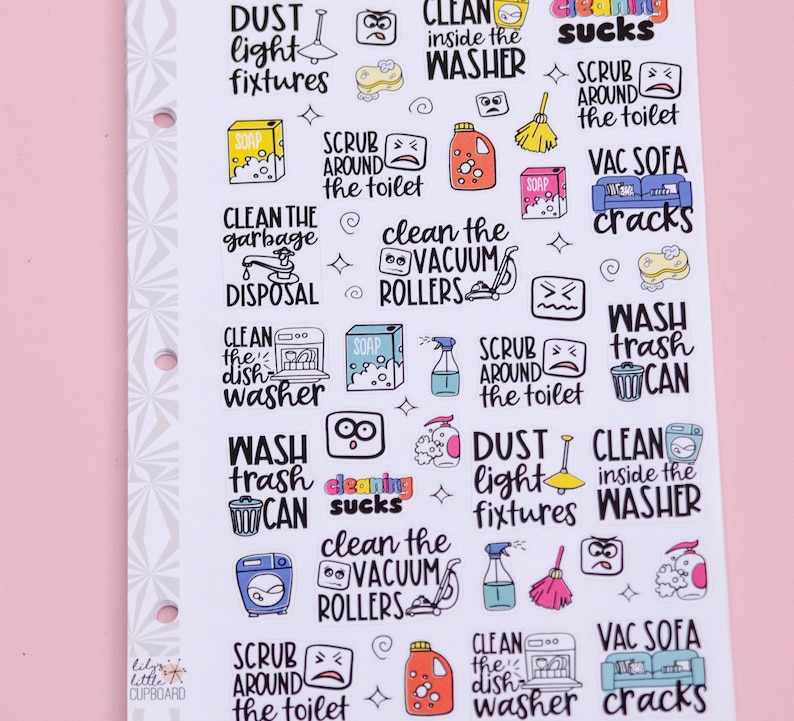 DUST
light
fixtures
CLEAN
inside the
WASHER
cleaning
sucks
SCRUB
AROUND
the toilet
SOAP
SCRUB
AROUND
the toilet
SOAP
VAC SOFA
cracks
CLEAN THE
garbage
DISPOSAL
clean the
VACUUM
ROLLERS
CLEAN
the
dish
washer
SOAP
SCRUB
AROUND
the toilet
WASH
trash
CAN
WASH
trash
CAN
cleaning
sucks
DUST
light
fixtures
CLEAN
inside the
WASHER
clean the
VACUUM
ROLLERS
SCRUB
AROUND
the toilet
CLEAN
the
dish
washer
VAC SOFA
cracks
lily's
little
CUPBOARD